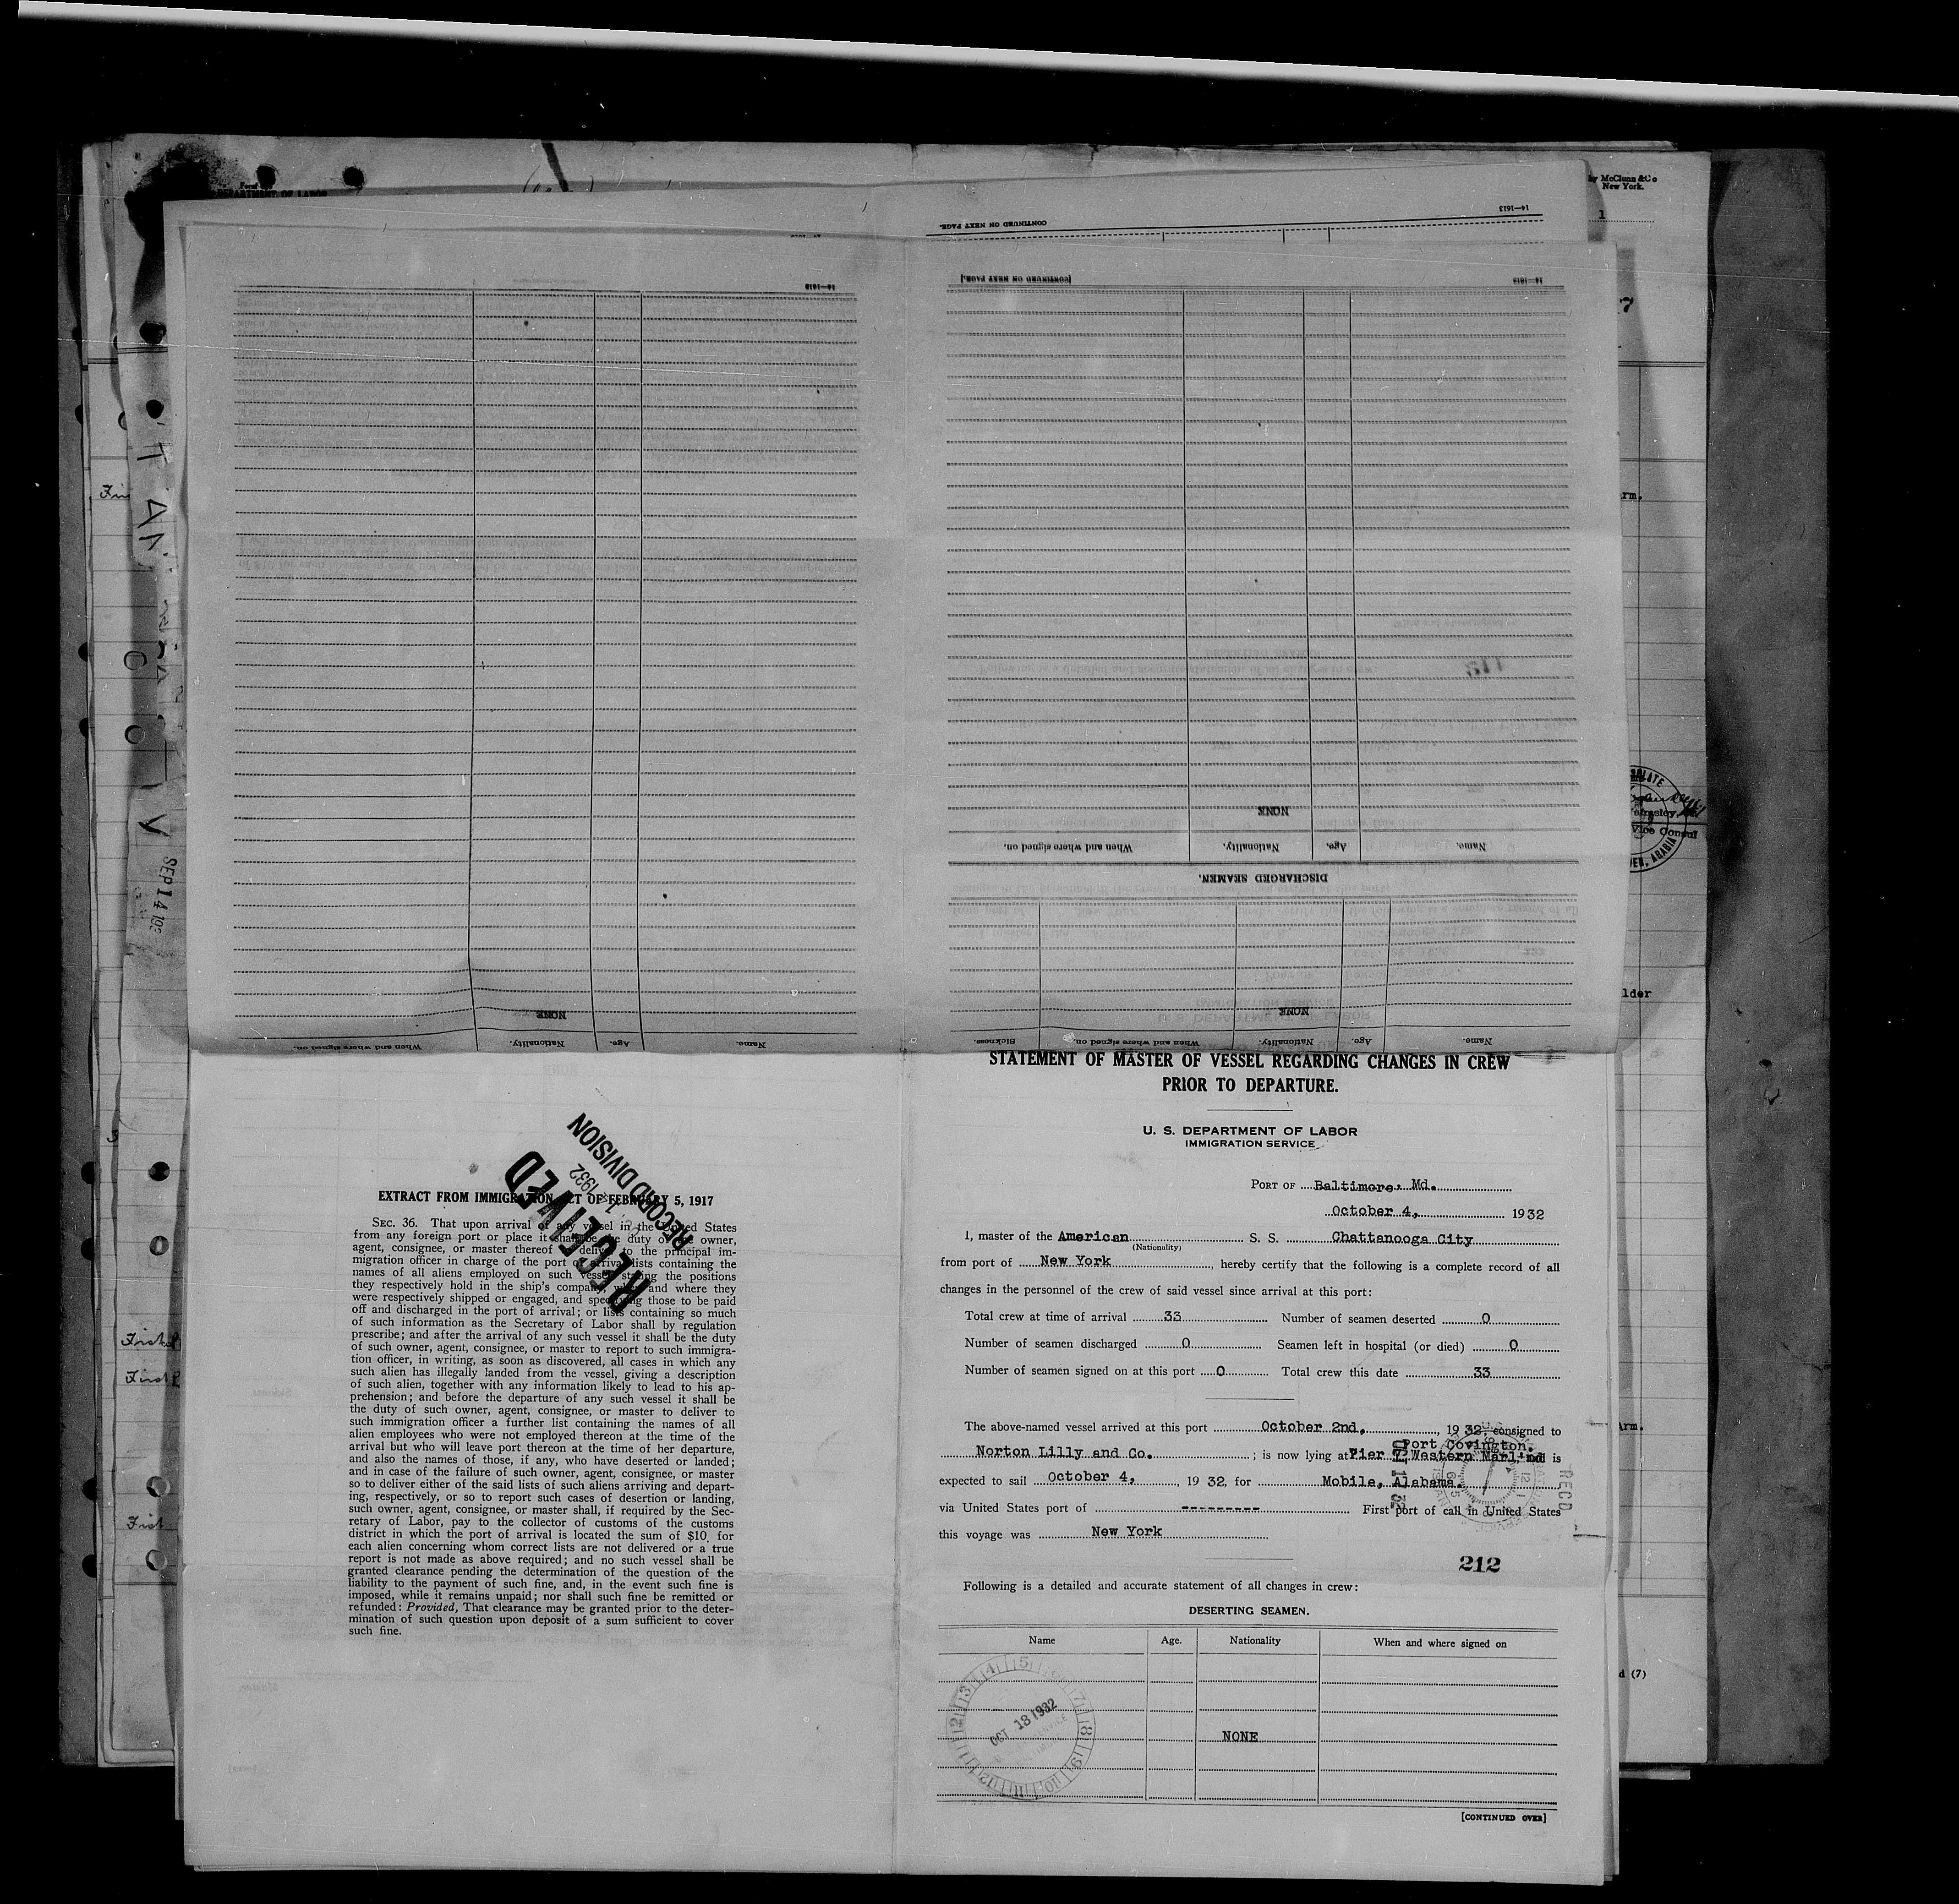 Form
DEPARTMENT OF LABOR
by McClunn & Co
New York.
1
14—1613
CONTINUED ON NEXT PAGE.
14—1613
[CONTINUED ON NEXT PAGE.]
14—1613
7
rm.
NONE
Name.
Age.
Nationality.
When and where signed on.
DISCHARGED SEAMEN.
NONE
Name.
Age.
Nationality.
When and where signed on.
Sickness.
NONE
Name.
Age.
Nationality.
When and where signed on.
SEP 14 193
Vice Consul
ADEN, ARABIA
lder
STATEMENT OF MASTER OF VESSEL REGARDING CHANGES IN CREW
PRIOR TO DEPARTURE.
U. S. DEPARTMENT OF LABOR
IMMIGRATION SERVICE
PORT OF Baltimore, Md.
October 4, 1932
I, master of the American S. S. Chattanooga City
(Nationality)
from port of New York, hereby certify that the following is a complete record of all
changes in the personnel of the crew of said vessel since arrival at this port:
Total crew at time of arrival 33 Number of seamen deserted 0
Number of seamen discharged 0 Seamen left in hospital (or died) 0
Number of seamen signed on at this port 0 Total crew this date 33
The above-named vessel arrived at this port October 2nd, 1932, consigned to
Port Covington.
Norton Lilly and Co. ; is now lying at Pier 7 Western Marl'nd is
expected to sail October 4, 1932, for Mobile, Alabama.
via United States port of --------- First port of call in United States
this voyage was New York
RECD
212
Following is a detailed and accurate statement of all changes in crew:
DESERTING SEAMEN.
Name Age. Nationality When and where signed on
OCT 18 1932
NONE
[CONTINUED OVER]
RECEIVED
1932
RECORD DIVISION
EXTRACT FROM IMMIGRATION ACT OF FEBRUARY 5, 1917
SEC. 36. That upon arrival of any vessel in the United States
from any foreign port or place it shall be the duty of the owner,
agent, consignee, or master thereof to deliver to the principal im-
migration officer in charge of the port of arrival lists containing the
names of all aliens employed on such vessel, stating the positions
they respectively hold in the ship's company, when and where they
were respectively shipped or engaged, and specifying those to be paid
off and discharged in the port of arrival; or lists containing so much
of such information as the Secretary of Labor shall by regulation
prescribe; and after the arrival of any such vessel it shall be the duty
of such owner, agent, consignee, or master to report to such immigra-
tion officer, in writing, as soon as discovered, all cases in which any
such alien has illegally landed from the vessel, giving a description
of such alien, together with any information likely to lead to his ap-
prehension; and before the departure of any such vessel it shall be
the duty of such owner, agent, consignee, or master to deliver to
such immigration officer a further list containing the names of all
alien employees who were not employed thereon at the time of the
arrival but who will leave port thereon at the time of her departure,
and also the names of those, if any, who have deserted or landed;
and in case of the failure of such owner, agent, consignee, or master
so to deliver either of the said lists of such aliens arriving and depart-
ing, respectively, or so to report such cases of desertion or landing,
such owner, agent, consignee, or master shall, if required by the Sec-
retary of Labor, pay to the collector of customs of the customs
district in which the port of arrival is located the sum of $10 for
each alien concerning whom correct lists are not delivered or a true
report is not made as above required; and no such vessel shall be
granted clearance pending the determination of the question of the
liability to the payment of such fine, and, in the event such fine is
imposed, while it remains unpaid; nor shall such fine be remitted or
refunded: Provided, That clearance may be granted prior to the deter-
mination of such question upon deposit of a sum sufficient to cover
such fine.
First
First
Arm.
d (7)